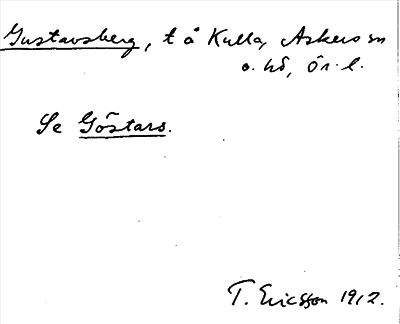 Gustavsberg, t å Kulla, Askers sn
o. hd, Ör. l.
Se Göstars.
T. Ericsson 1912.